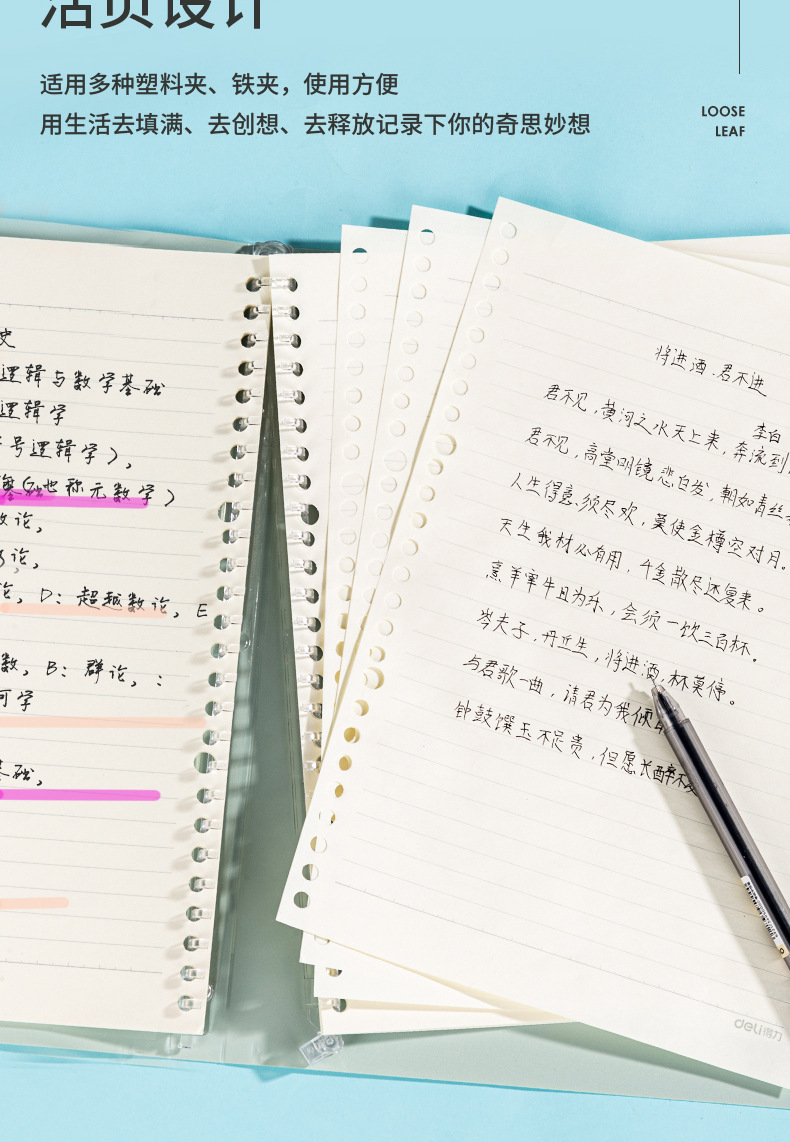 活页设计
适用多种塑料夹、铁夹，使用方便
用生活去填满、去创想、去释放记录下你的奇思妙想
LOOSE
LEAF
史
逻辑与数学基础
逻辑学
号逻辑学），
基础（也称元数学）
数论，
论，
论，D：超越数论，E
数，B：群论，：
何学
基础，
将进酒.君不进
李白
君不见，黄河之水天上来，奔流到
君不见，高堂明镜悲白发，朝如青丝
人生得意须尽欢，莫使金樽空对月。
天生我材必有用，千金散尽还复来。
烹羊宰牛且为乐，会须一饮三百杯。
岑夫子，丹丘生，将进酒，杯莫停。
与君歌一曲，请君为我倾
钟鼓馔玉不足贵，但愿长醉不
deli得力